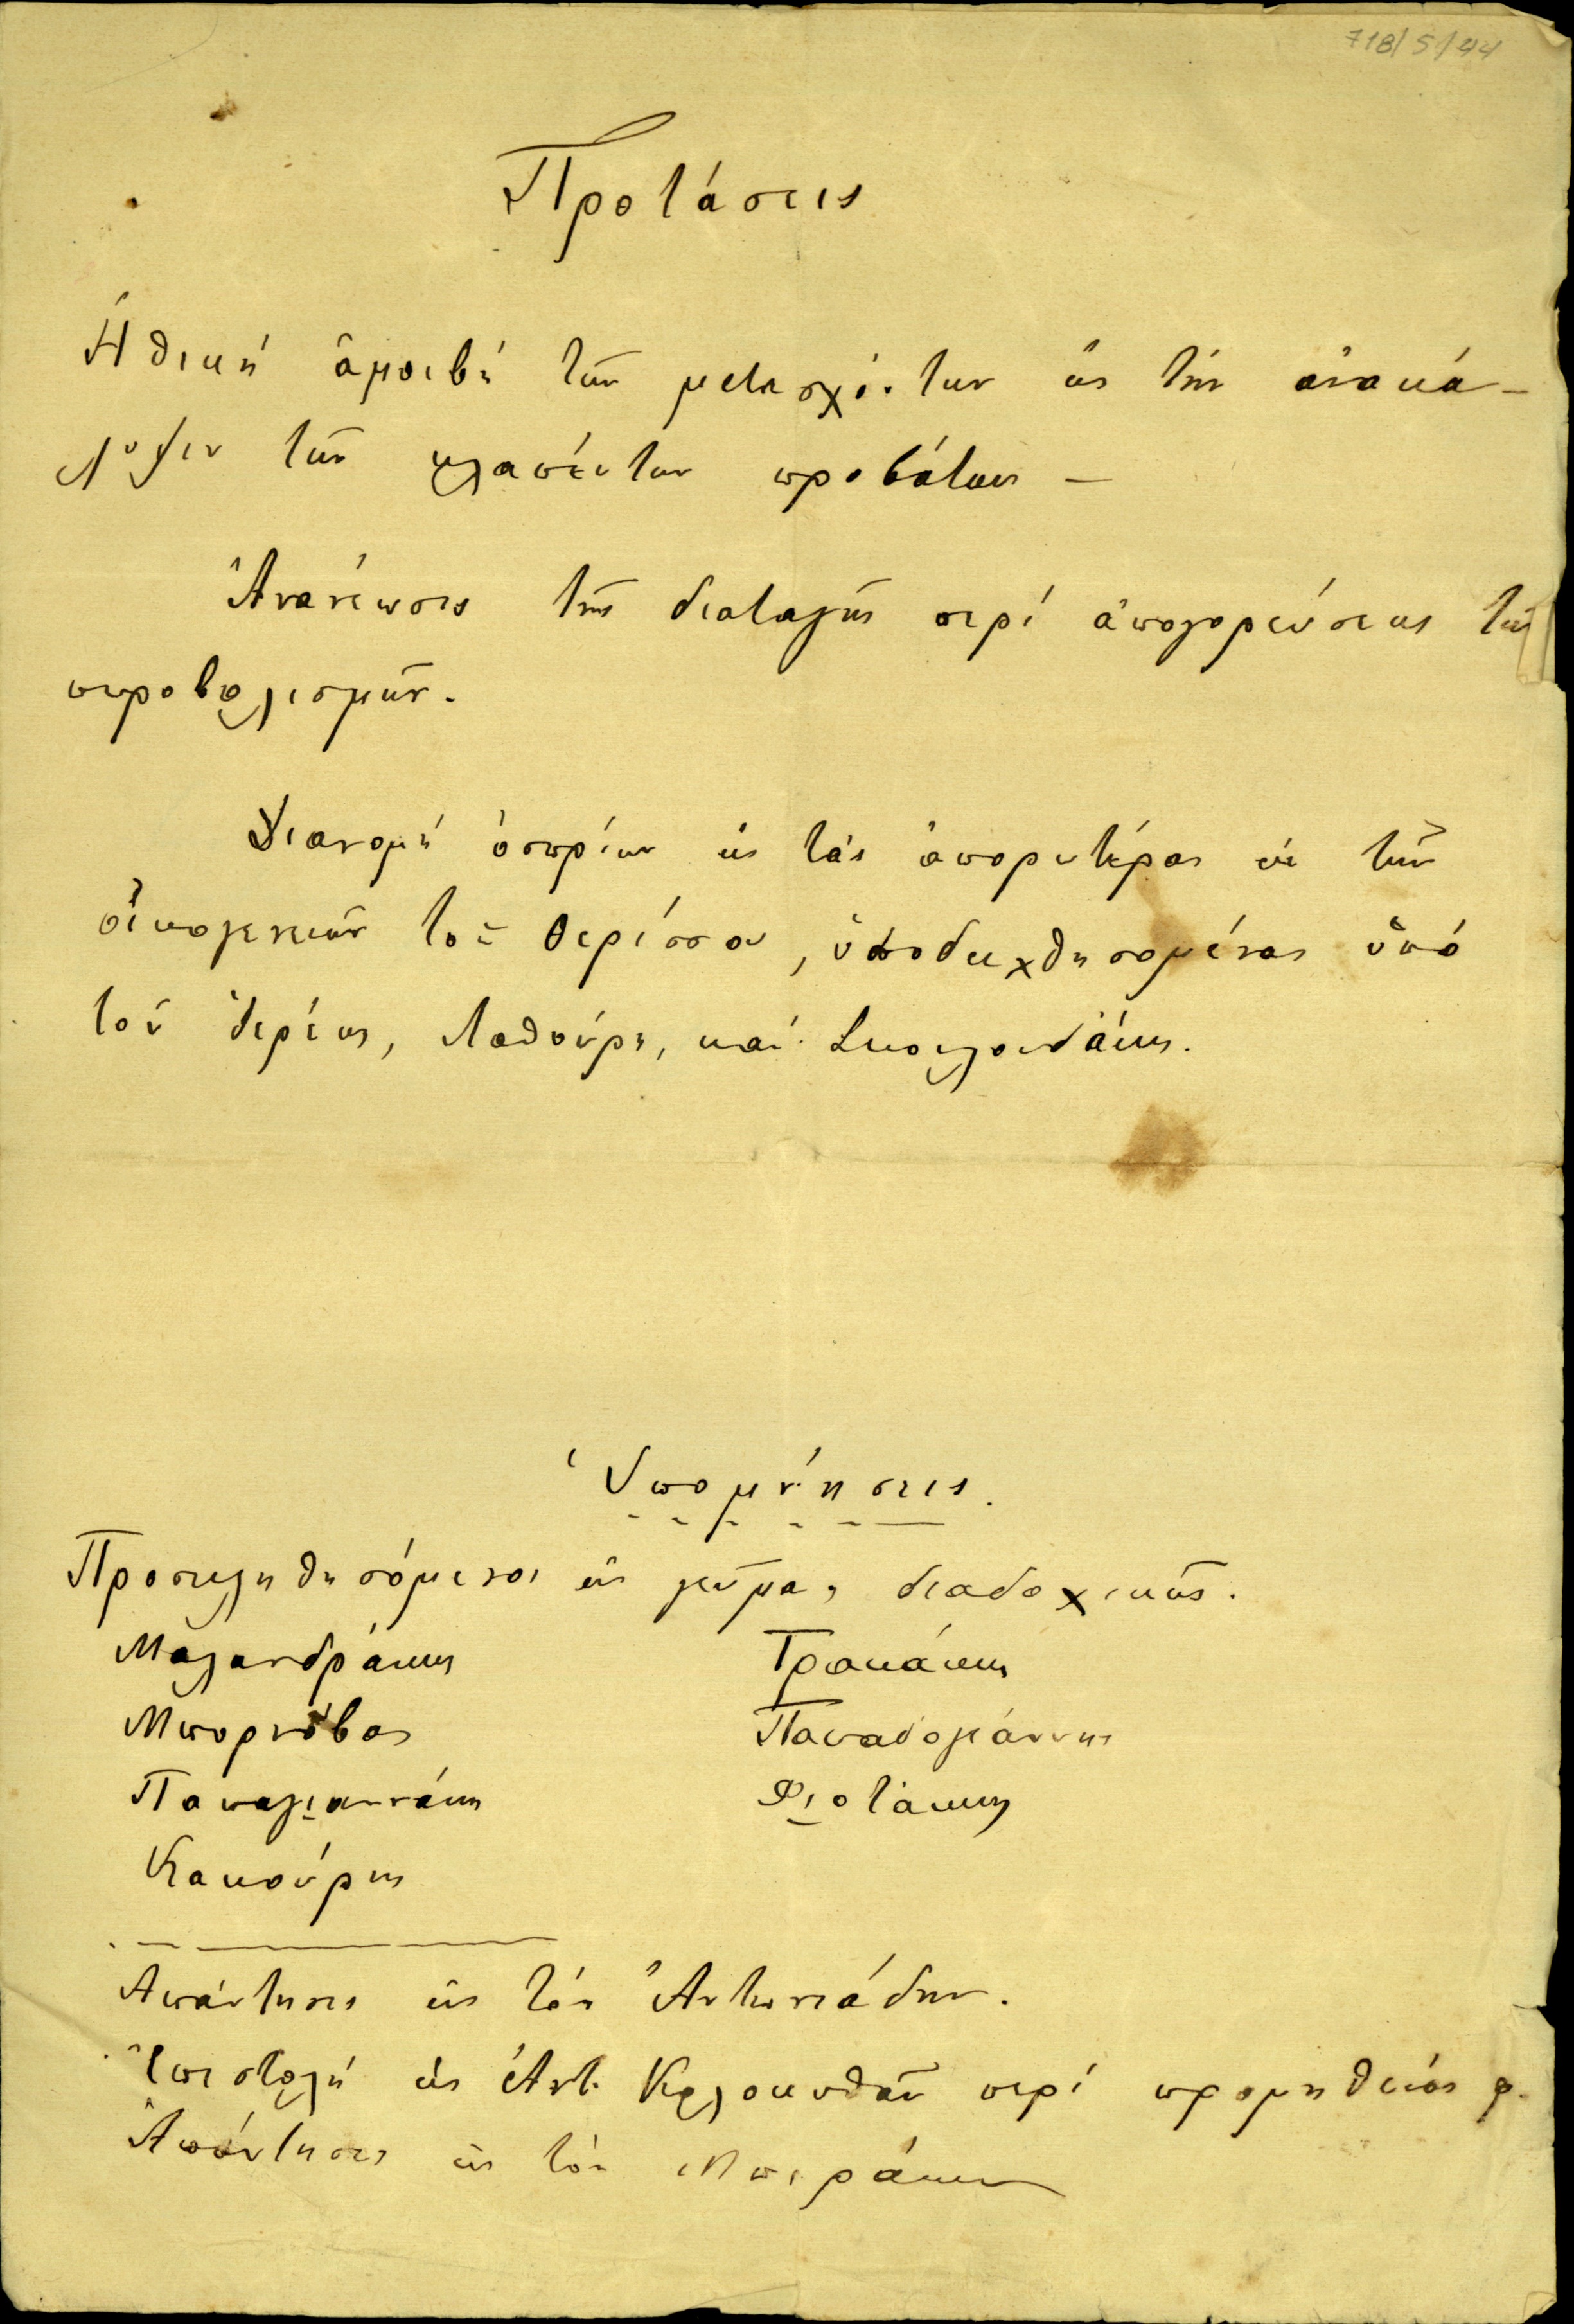 718/5/44
Προτάσεις
Ἠθική ἀμοιβή τῶν μετασχόντων εἰς τήν ἀνακά-
λυψιν τῶν κλαπέντων προβάτων –
Ἀνανέωσις τῆς διαταγῆς περί ἀπαγορεύσεως τῶν
πυροβολισμῶν.
Διανομή ὀσπρίων εἰς τάς ἀπορωτέρας ἐκ τῶν
οἰκογενειῶν τοῦ Θερίσσου, ὑποδειχθησομένας ὑπό
τοῦ Ἱερέως, Λαθούρη, καί
Ὑπομνήσεις.
Προσκληθησόμενοι εἰς γεῦμα, διαδοχικῶς.
Μαλανδράκης Τρακάκης
Μπορνόβας Παπαδογιάννης
Παπαγιαννάκης Φιοτάκης
Κακούρης
Ἀπάντησις εἰς τόν Ἀντωνιάδην.
Ἐπιστολή εἰς Ἀντ. Κολοκυθᾶν περί προμηθείας φ.
Ἀπάντησις εἰς τόν Μπιράκην